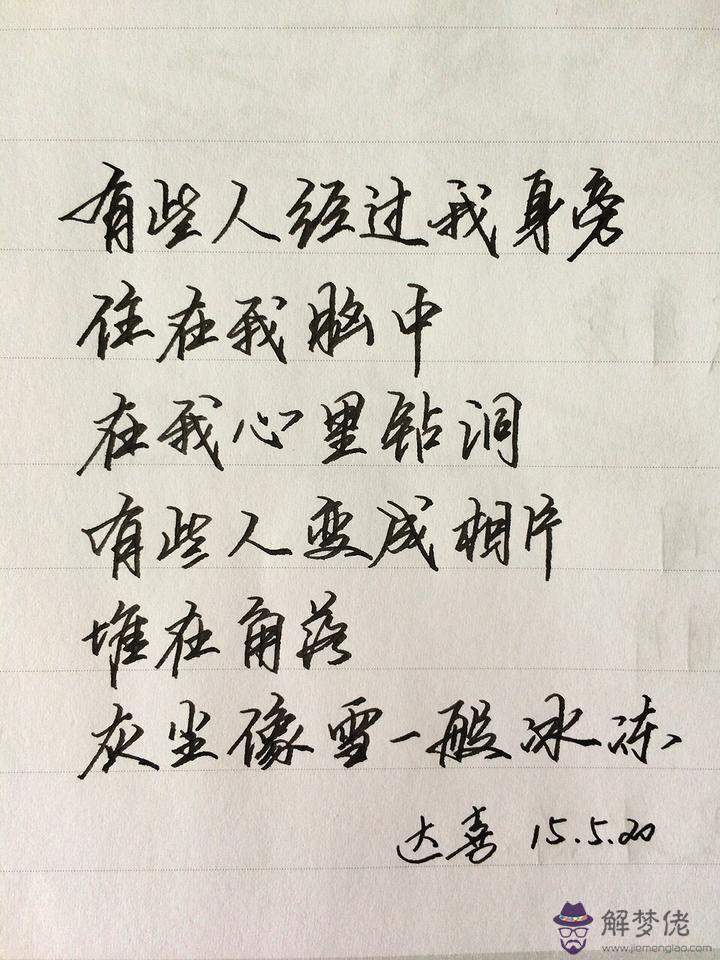 有些人经过我身旁
住在我脑中
在我心里钻洞
有些人变成相片
堆在角落
灰尘像雪一般冰冻
达喜 15.5.20
解梦佬
www.jiemenglao.com